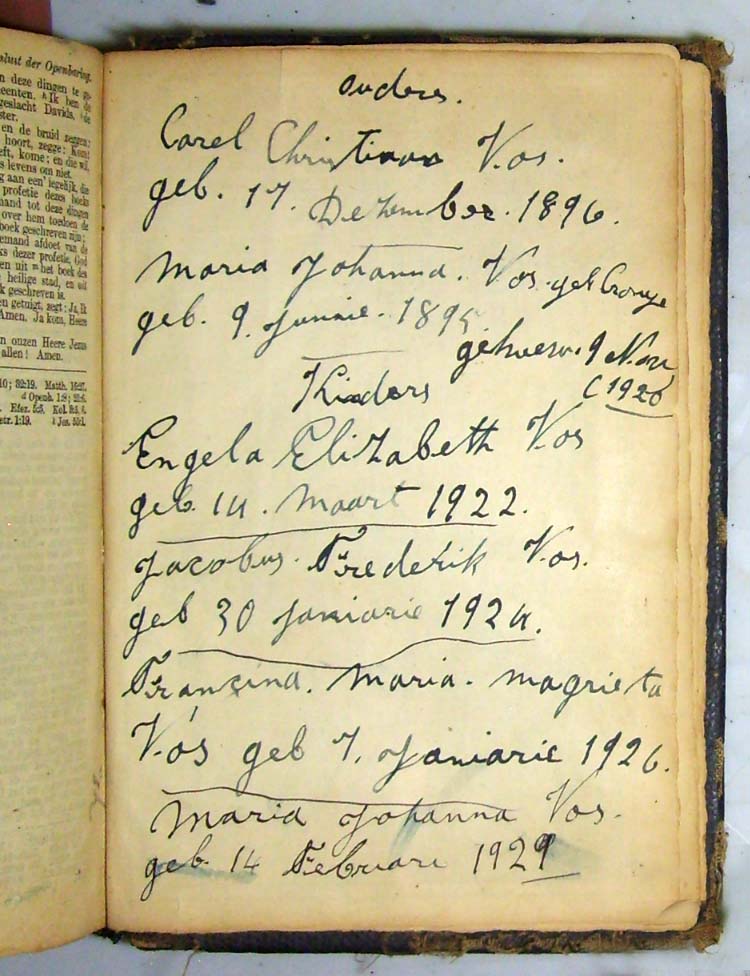 sluit der Openbaring.
n deze dingen te ge-
eenten. Ik ben de
geslacht Davids, de
ster.
en de bruid zeggen:
hoort, zegge: Kom!
eft, kome; en die wil,
s levens om niet.
aan een' iegelijk, die
profetie dezes boeks
mand tot deze dingen
over hem toedoen de
boek geschreven zijn;
iemand afdoet van de
ks dezer profetie, God
en uit het boek des
heilige stad, en uit
k geschreven is.
en getuigt, zegt: Ja, Ik
Amen. Ja kom, Heere
n onzen Heere Jezus
allen! Amen.
10; 82:19. Matth. 16:27.
d Openb. 1:8;
Efez. 5:5. Kol. 3:5, 6.
etr. 1:19. Jes. 55:1.
ouders.
Carel Christiaan Vos.
geb. 17. Dezember. 1896.
Maria Johanna. Vos. geb Cronje
geb. 9. Junnie. 1895
gehuew. 9 Nov
Kinders
(1920
Engela Elizabeth Vos
geb. 14. Maart 1922.
Jacobus. Frederik Vos.
geb 30 Janiarie 1924.
Francina. Maria. Magrieta
Vos geb 7. Janiarie 1926.
Maria Johanna Vos.
geb. 14 Februari 1929